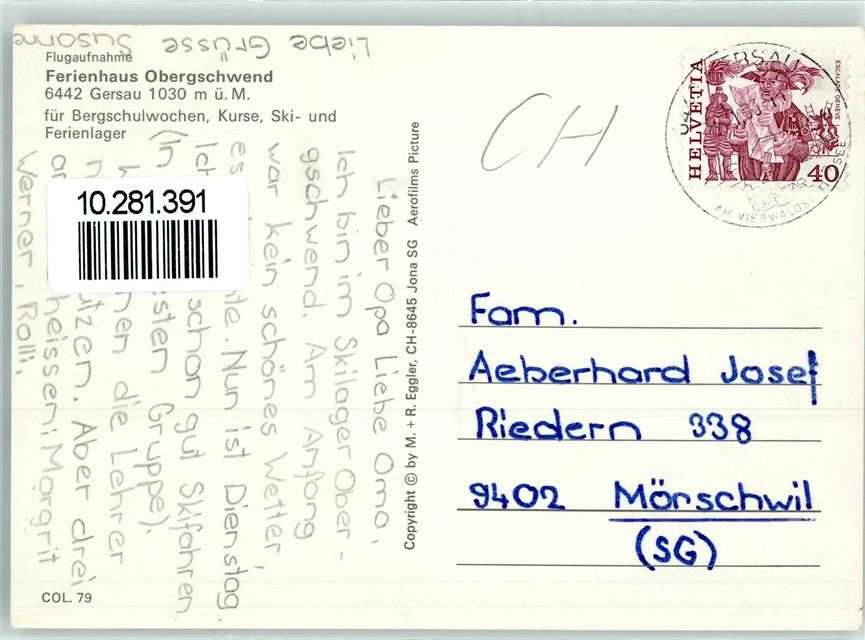 Liebe Grüsse Susanne
Flugaufnahme
Ferienhaus Obergschwend
6442 Gersau 1030 m ü. M.
für Bergschulwochen, Kurse, Ski- und
Ferienlager
Lieber Opa Liebe Oma,
Ich bin im Skilager Ober-
gschwend. Am Anfang
war kein schönes Wetter,
es Nun ist Dienstag.
Ich schon gut Skifahren
(In Gruppe).
die Lehrer
Aber drei
heissen: Margrit
Werner, Rolli.
10.281.391
COL. 79
Copyright © by M. + R. Eggler, CH-8645 Jona SG Aerofilms Picture
CH
HELVETIA
ESCALADE GENÈVE
40
GERSAU
AM VIERWALDST
SEE
Fam.
Aeberhard Josef
Riedern 338
9402 Mörschwil
(SG)